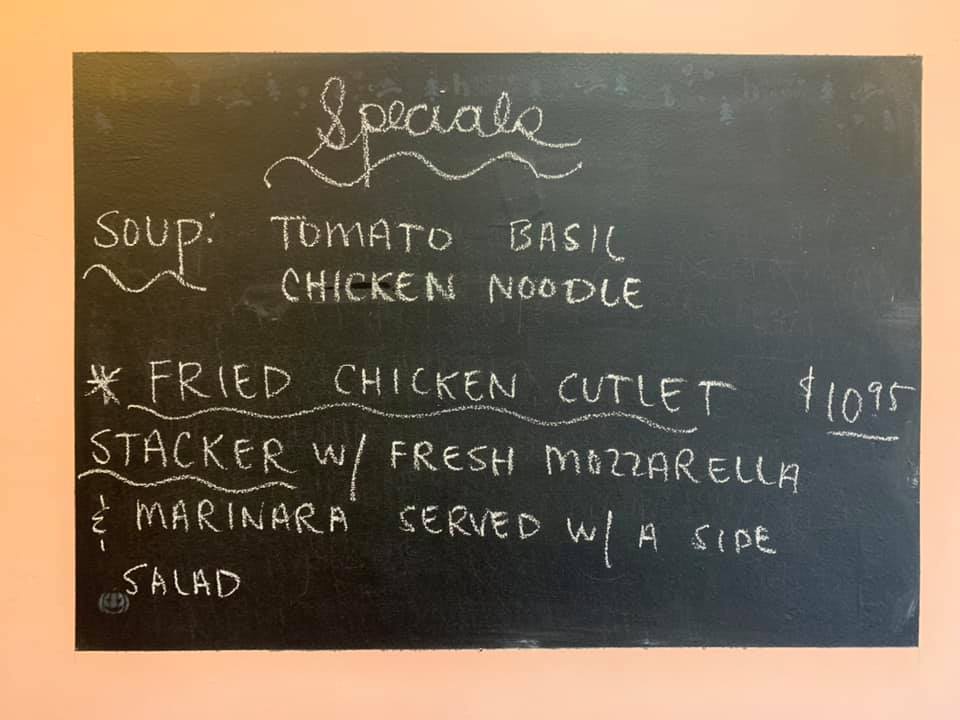 Specials
SOUP: TOMATO BASIL
CHICKEN NOODLE
* FRIED CHICKEN CUTLET $10.95
STACKER W/ FRESH MOZZARELLA
& MARINARA SERVED W/ A SIDE
SALAD